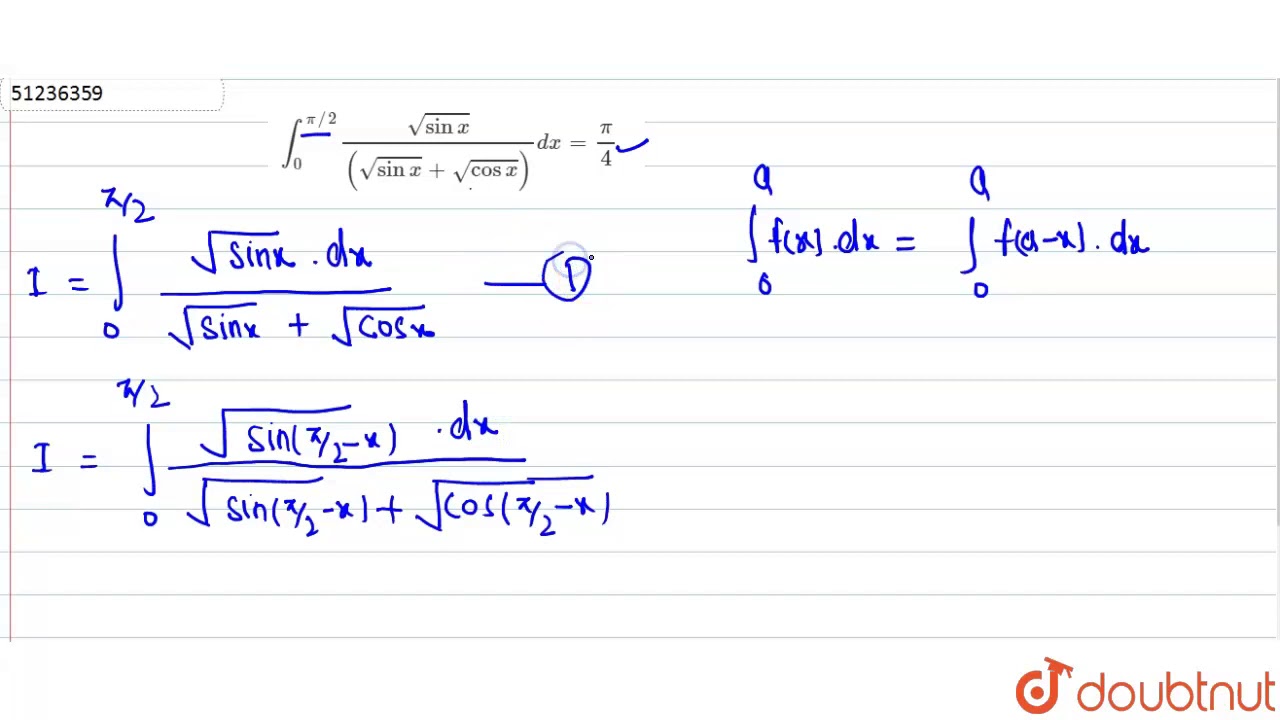 51236359
∫₀^{π/2} √sin x / (√sin x + √cos x) dx = π/4
I = ∫₀^{π/2} √sinx . dx / √sinx + √cosx —— ①
∫₀^a f(x) . dx = ∫₀^a f(a-x) . dx
I = ∫₀^{π/2} √sin(π/2-x) . dx / √sin(π/2-x) + √cos(π/2-x)
doubtnut